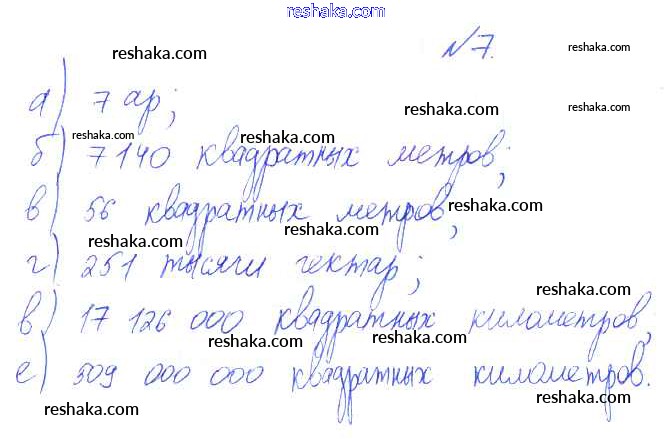 reshaka.com
№7.
reshaka.com
reshaka.com
а) 7 ар;
reshaka.com
reshaka.com
reshaka.com
reshaka.com
б) 7140 квадратных метров;
в) 56 квадратных метров;
reshaka.com
reshaka.com
г) 251 тысячи гектар;
reshaka.com
reshaka.com
в) 17 126 000 квадратных километров,
reshaka.com
reshaka.com
е) 509 000 000 квадратных километров.
reshaka.com
reshaka.com